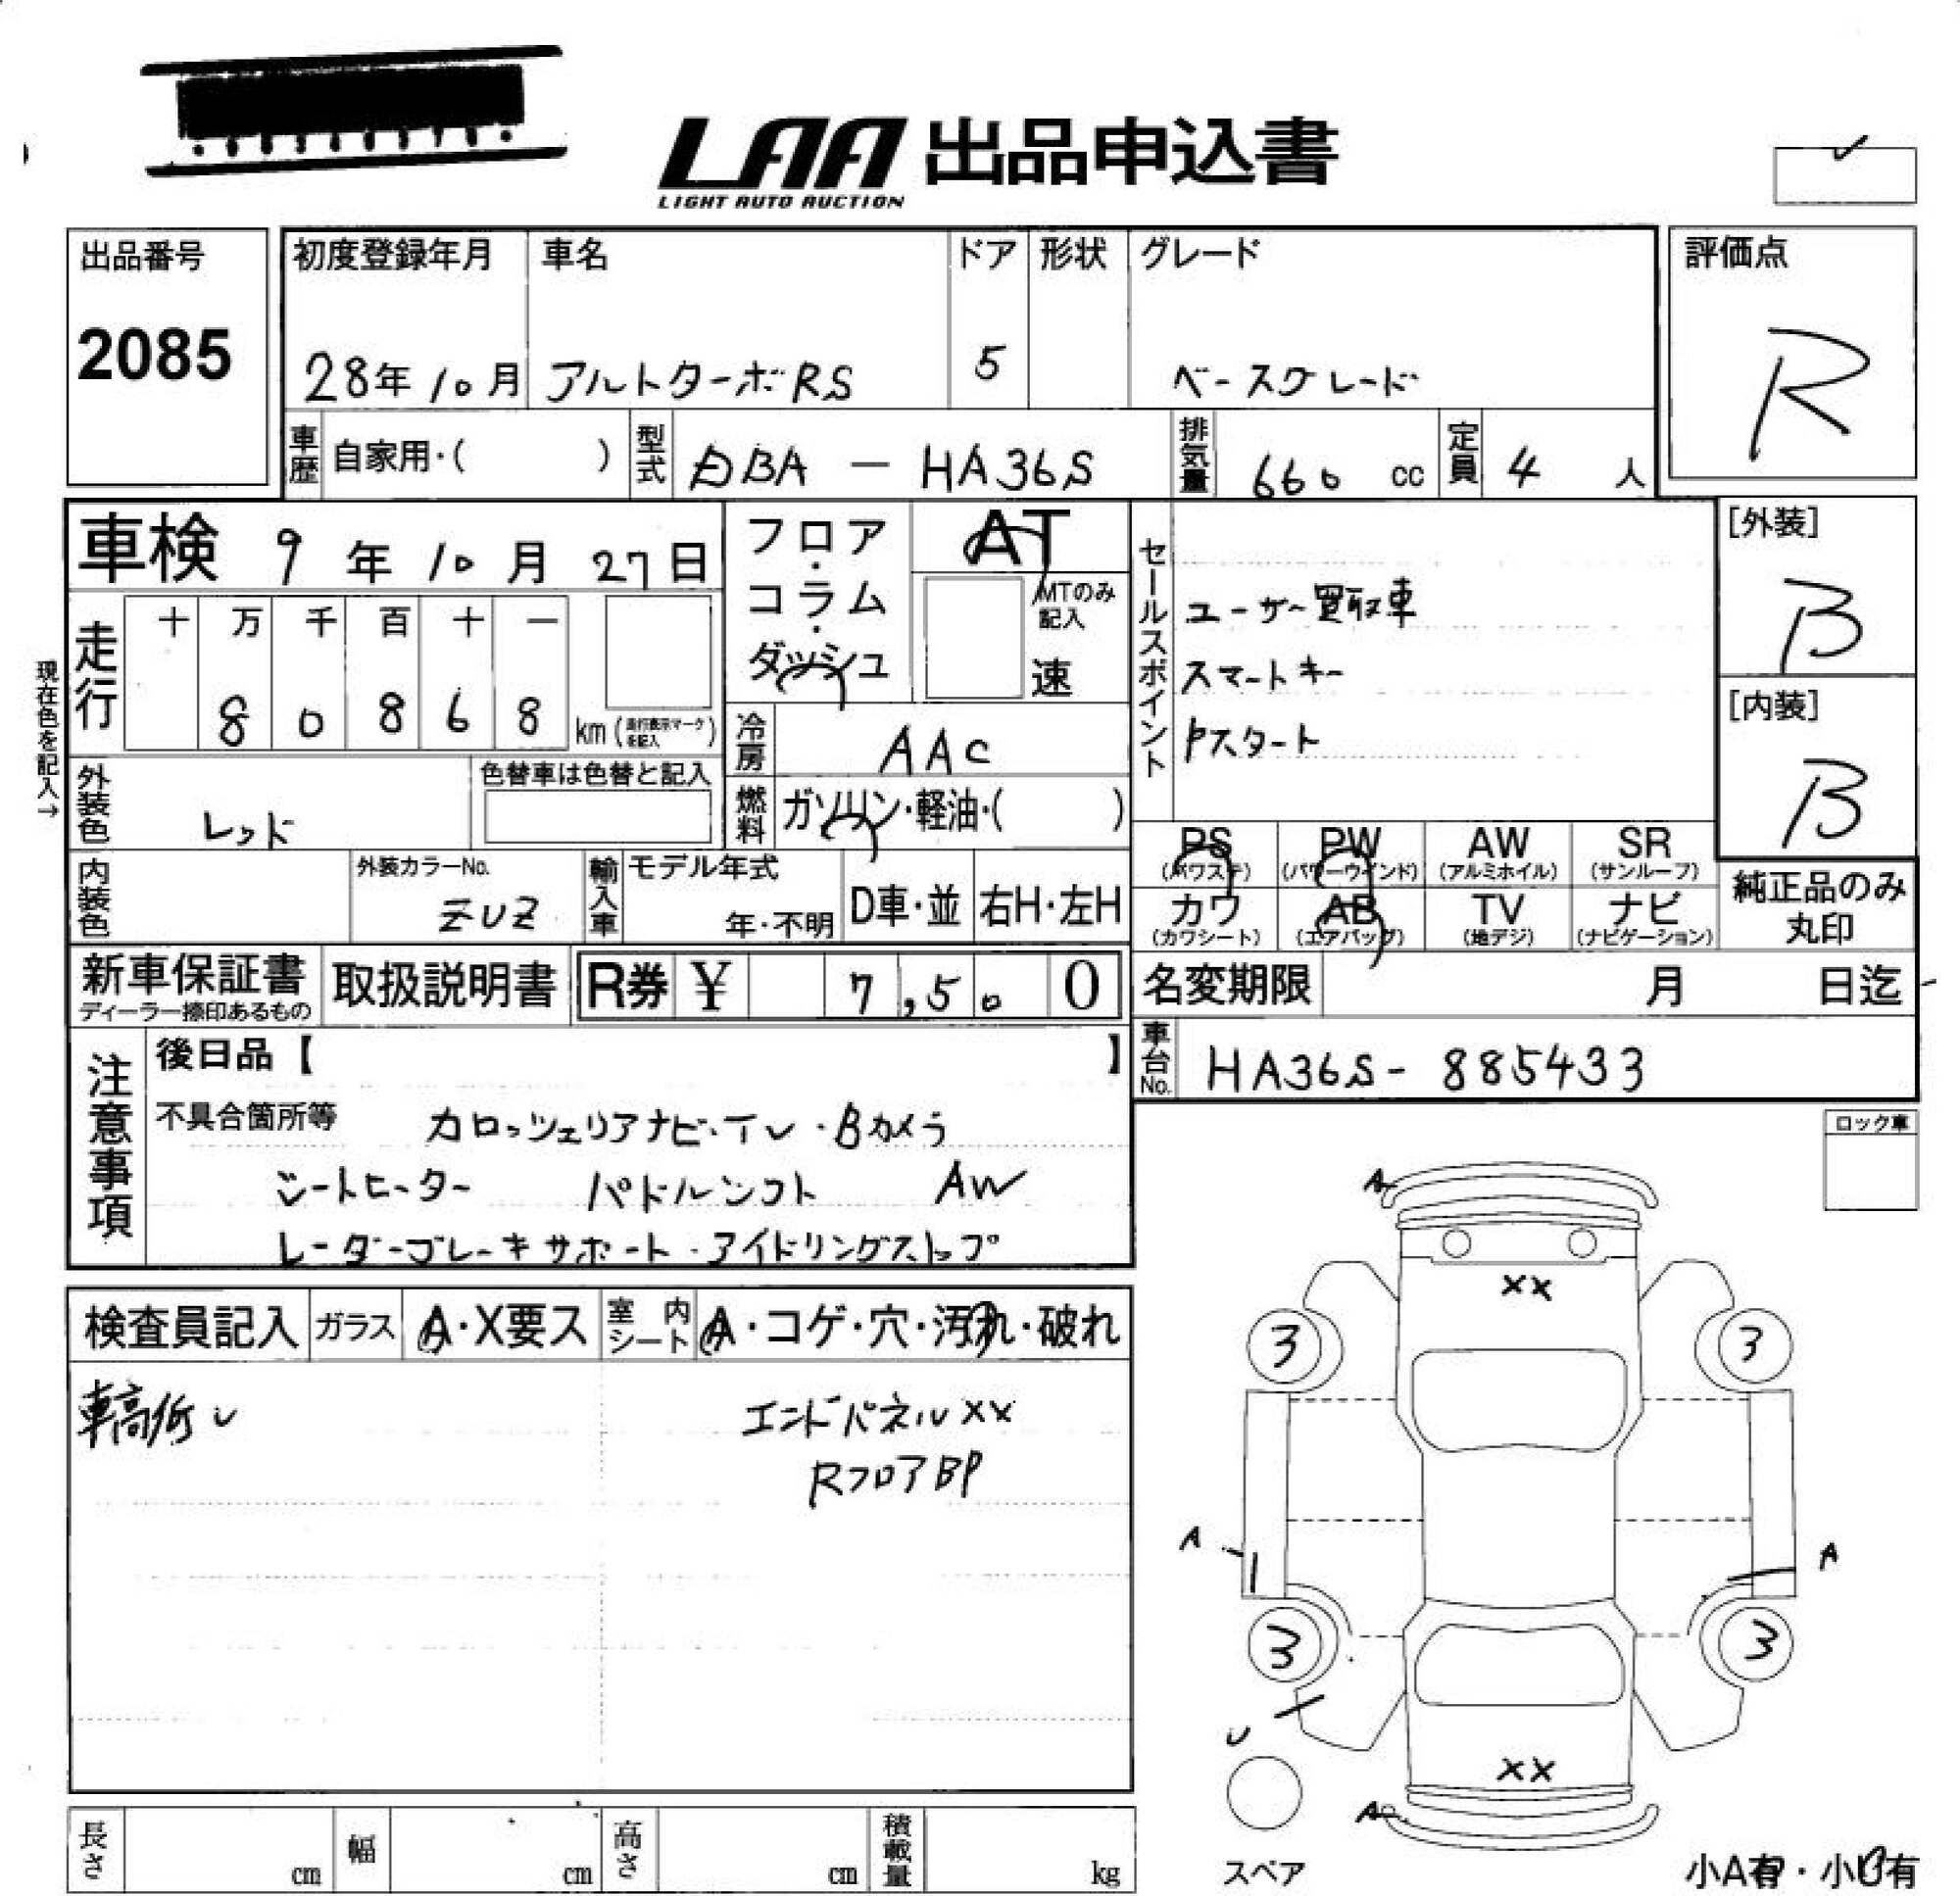 LAA 出品申込書
LIGHT AUTO AUCTION
出品番号
2085
初度登録年月 車名 ドア 形状 グレード
28年10月 アルトターボRS 5 ベースグレード
評価点
R
車歴 自家用・( ) 型式 DBA - HA36S 排気量 660 cc 定員 4 人
車検 9年10月27日
フロア・コラム・ダッシュ
AT
MTのみ記入
速
セールスポイント
ユーザー買取車
スマートキー
Pスタート
[外装]
B
[内装]
B
現在色を記入→
走行 十 万 千 百 十 一
8 0 8 6 8 km (走行表示マークを記入)
冷房 AAC
燃料 ガソリン・軽油・( )
外装色 レッド
色替車は色替と記入
内装色
外装カラーNo.
ZUZ
輸入車 モデル年式
年・不明 D車・並 右H・左H
PS (パワステ) PW (パワーウインド) AW (アルミホイル) SR (サンルーフ)
カワ (カワシート) AB (エアバッグ) TV (地デジ) ナビ (ナビゲーション)
純正品のみ丸印
新車保証書
ディーラー捺印あるもの
取扱説明書
R券 ¥ 7,500
名変期限 月 日迄
車台No. HA36S- 885433
注意事項
後日品【 】
不具合箇所等 カロッツェリアナビ・テレ・Bカメラ
シートヒーター パドルシフト AW
レーダーブレーキサポート・アイドリングストップ
ロック車
検査員記入 ガラス A・X要ス 室内シート A・コゲ・穴・汚れ・破れ
車高低し
エンドパネルXX
RフロアBP
A
XX
3 3
A A
3 3
U
XX
A
スペア
小A有・小U有
長さ cm 幅 cm 高さ cm 積載量 kg